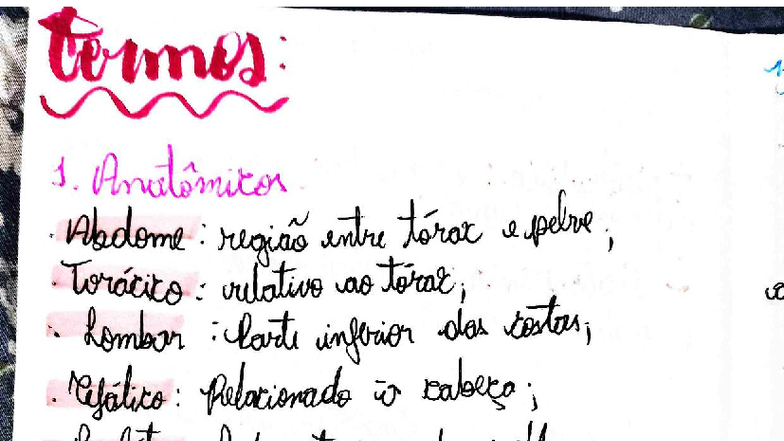 termos:
1. Anatômicos
. Abdome: região entre tórax e pelve;
. Torácico: relativo ao tórax;
. Lombar: Parte inferior das costas;
. Cefálico: Relacionado à cabeça;